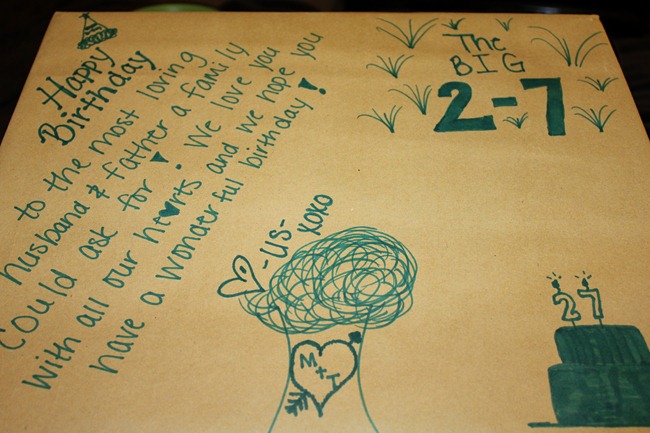 Happy
Birthday
to the most loving
husband & father a family
could ask for! We love you
with all our hearts and we hope you
have a wonderful birthday!
-US-
XOXO
The
BIG
2-7
M+T
27